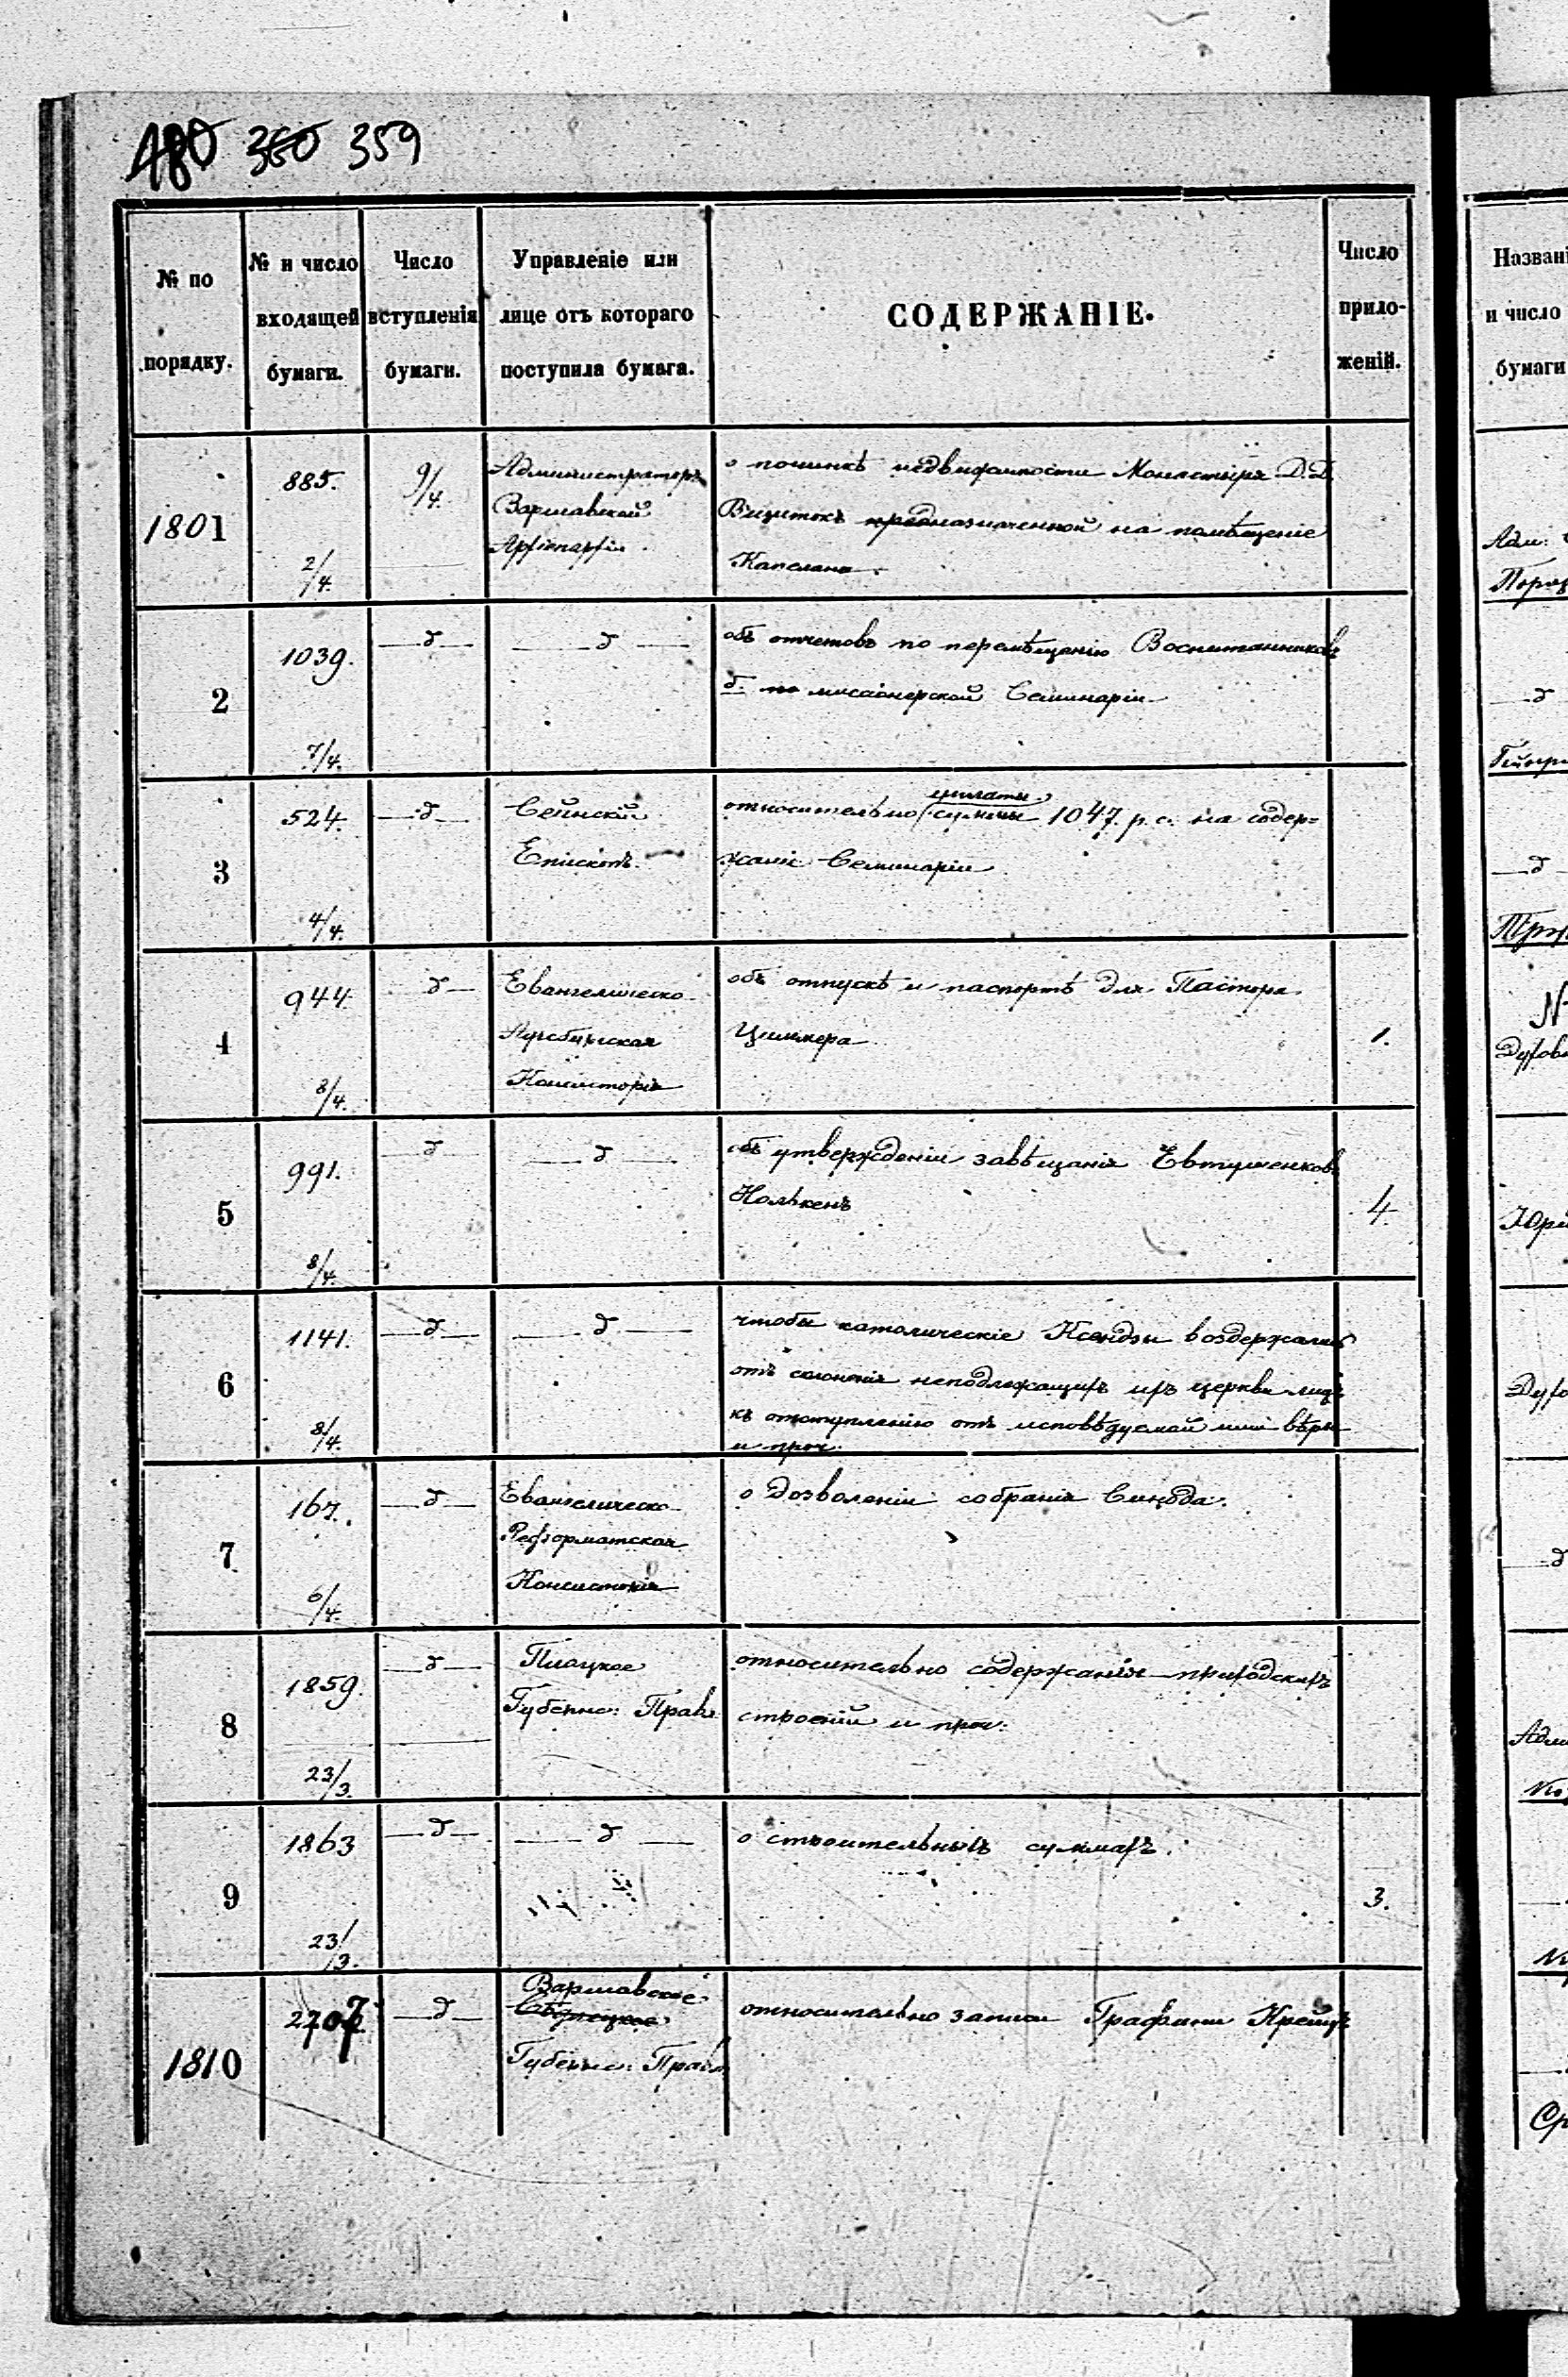 480 360 359
№ по порядку.
№ и число входящей бумаги.
Число вступленія бумаги.
Управленіе или лице отъ котораго поступила бумага.
СОДЕРЖАНІЕ.
Число приложеній.
1801
885.
2/4.
9/4.
Администраторъ
Варшавской
Архіепархіи.
о починкѣ недвижимости Монастыря Д.Д.
Визитокъ предназначенной на помѣщеніе
Капелана.
2
1039.
7/4.
—д—
—д—
объ отчетовъ по перемѣщенію Воспитанниковъ
б. по мисіонерской Семинаріи
3
524.
4/4.
—д—
Сейнскій
Епископъ.
уплаты
относительно суммы 1047. р. с. на содер=
жаніе Семинаріи
4
944.
8/4.
д—
Евангелическо
Аугсбургская
Консисторія
объ отпускѣ и паспортѣ для Пастора
Циммера
1.
5
991.
8/4.
д
—д—
объ утвержденіи завѣщанія Евтушенковъ
Нолькенъ
4.
6
1141.
8/4.
—д—
—д—
чтобы католическіе Ксендзы воздержались
отъ склоненія неподлежащихъ ихъ церкви лицъ
къ отступленію отъ исповѣдуемой ими вѣры
и проч.
7
167.
6/4.
—д—
Евангелическо
Реформатская
Консисторія
о дозволеніи собранія Синода.
8
1859.
23/3.
—д—
Плоцкое
Губернс: Правл
относительно содержанія приходскихъ
строеній и проч:
9
1863
23/3.
—д—
—д—
о строительныхъ суммахъ.
3.
1810
2707
—д—
Варшавское
Губернс: Правл
относительно записи Графини Крейцъ
Названі
и число
бумаги
Адм:
—д
—д
N
Духов
Юри
Духо
—д
Адм
Ср